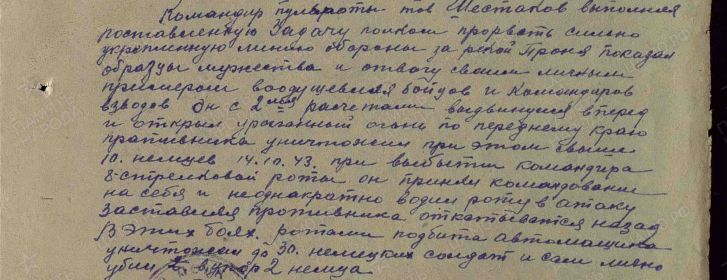 Командир пульроты тов Шестаков выполняя
поставленную задачу полком прорвать сильно
укрепленную линию обороны за рекой Проня показал
образцы мужества и отвагу своим личным
примером воодушевлял бойцов и командиров
взводов он с 2 мя расчетами выдвинулся вперед
и открыл ураганный огонь по переднему краю
противника уничтожил при этом свыше
10. немцев 14.10.43. при выбытии командира
8-стрелковой роты он принял командование
на себя и неоднакратно водил роту в атаку
заставлял противника откатыватся назад
В этих боях. ротами подбита автомашина
уничтожено до 30. немецких солдат и сам лично
убил в упор 2 немца